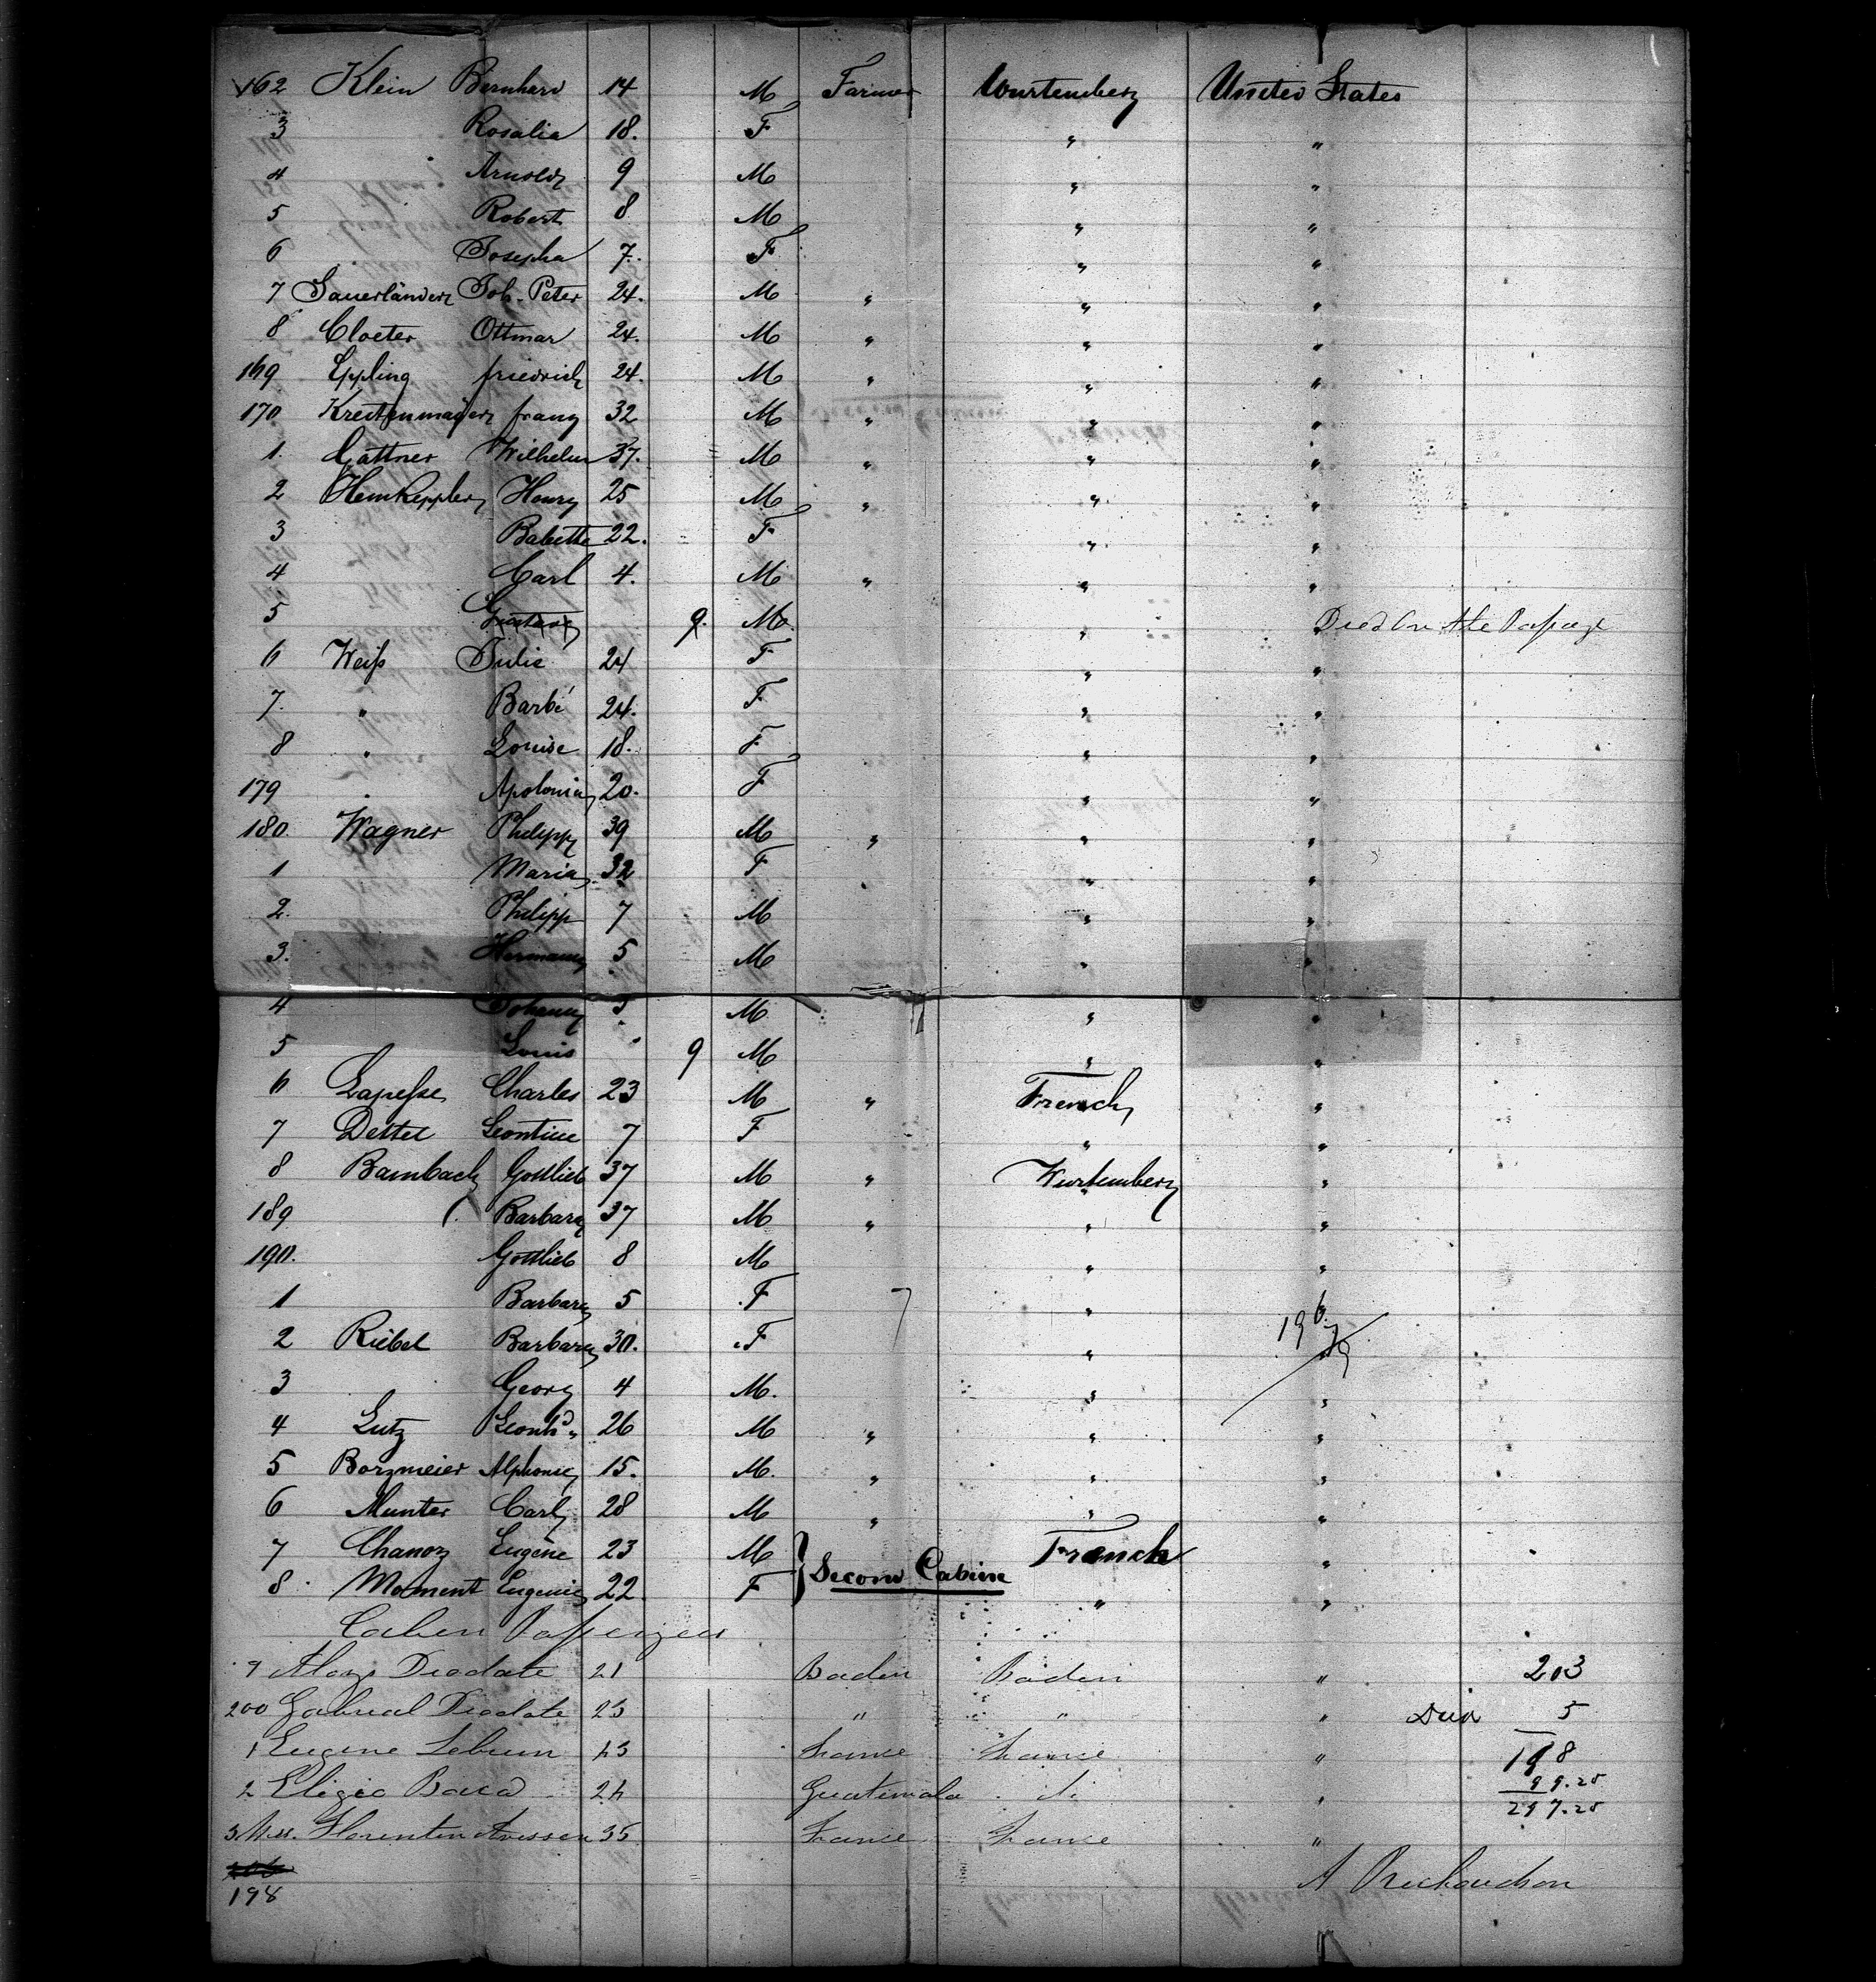 162 Klein Bernhard 14 M Farmer Wurtemberg United States
3 Rosalia 18. F " "
4 Arnold 9 M " "
5 Robert 8 M " "
6 Josepha 7. F " "
7 Sauerländer Joh. Peter 24. M " " "
8 Cloeter Ottmar 24. M " " "
169 Eppling friedrich 24. M " " "
170 Kreitenmayer franz 32 M " " "
1. Gattner Wilhelm 37. M " " "
2 Hemkeppler Henry 25 M " " "
3 Babette 22. F " "
4 Carl 4. M " " "
5 Gustav 9. M " Died On the Passage
6 Weiss Julie 24 F " "
7. " Barbe 24. F " "
8 " Louise 18. F " "
179 " Apolonia 20. F " "
180 Wagner Philipp 39 M " " "
1 Maria 32 F " "
2. Philipp 7 M " "
3. Hermann 5 M " "
4 Johann 3 M " "
5 Louis " 9 M " "
6 Lapesse Charles 23 M " French "
7 Dettel Leontine 7 F " "
8 Bambach Gottlieb 37 M " Wurtemberg "
189 Barbara 37 M " " "
190. Gottlieb 8 M " "
1 Barbara 5 F " "
2 Riebel Barbara 30. F " "
3 Georg 4 M. " "
4 Lutz Leonhd 26 M " " "
5 Borzmeier Alphonse 15. M. " " "
6 Munter Carl 28 M " " "
7 Chanoz Eugène 23 M } Second Cabine French "
8 Moment Eugenie 22. F " "
Caben Passengers
9 Deodate 21 Baden Baden " 203
200 Gabrial Deodate 23 " " " Died 5
1 Eugene Lebrun 43 France France " 198
2 Eligio Baca 24 Guatemala di " 99.25
297.25
3 Florentin 35 France France "
198
A Richardson